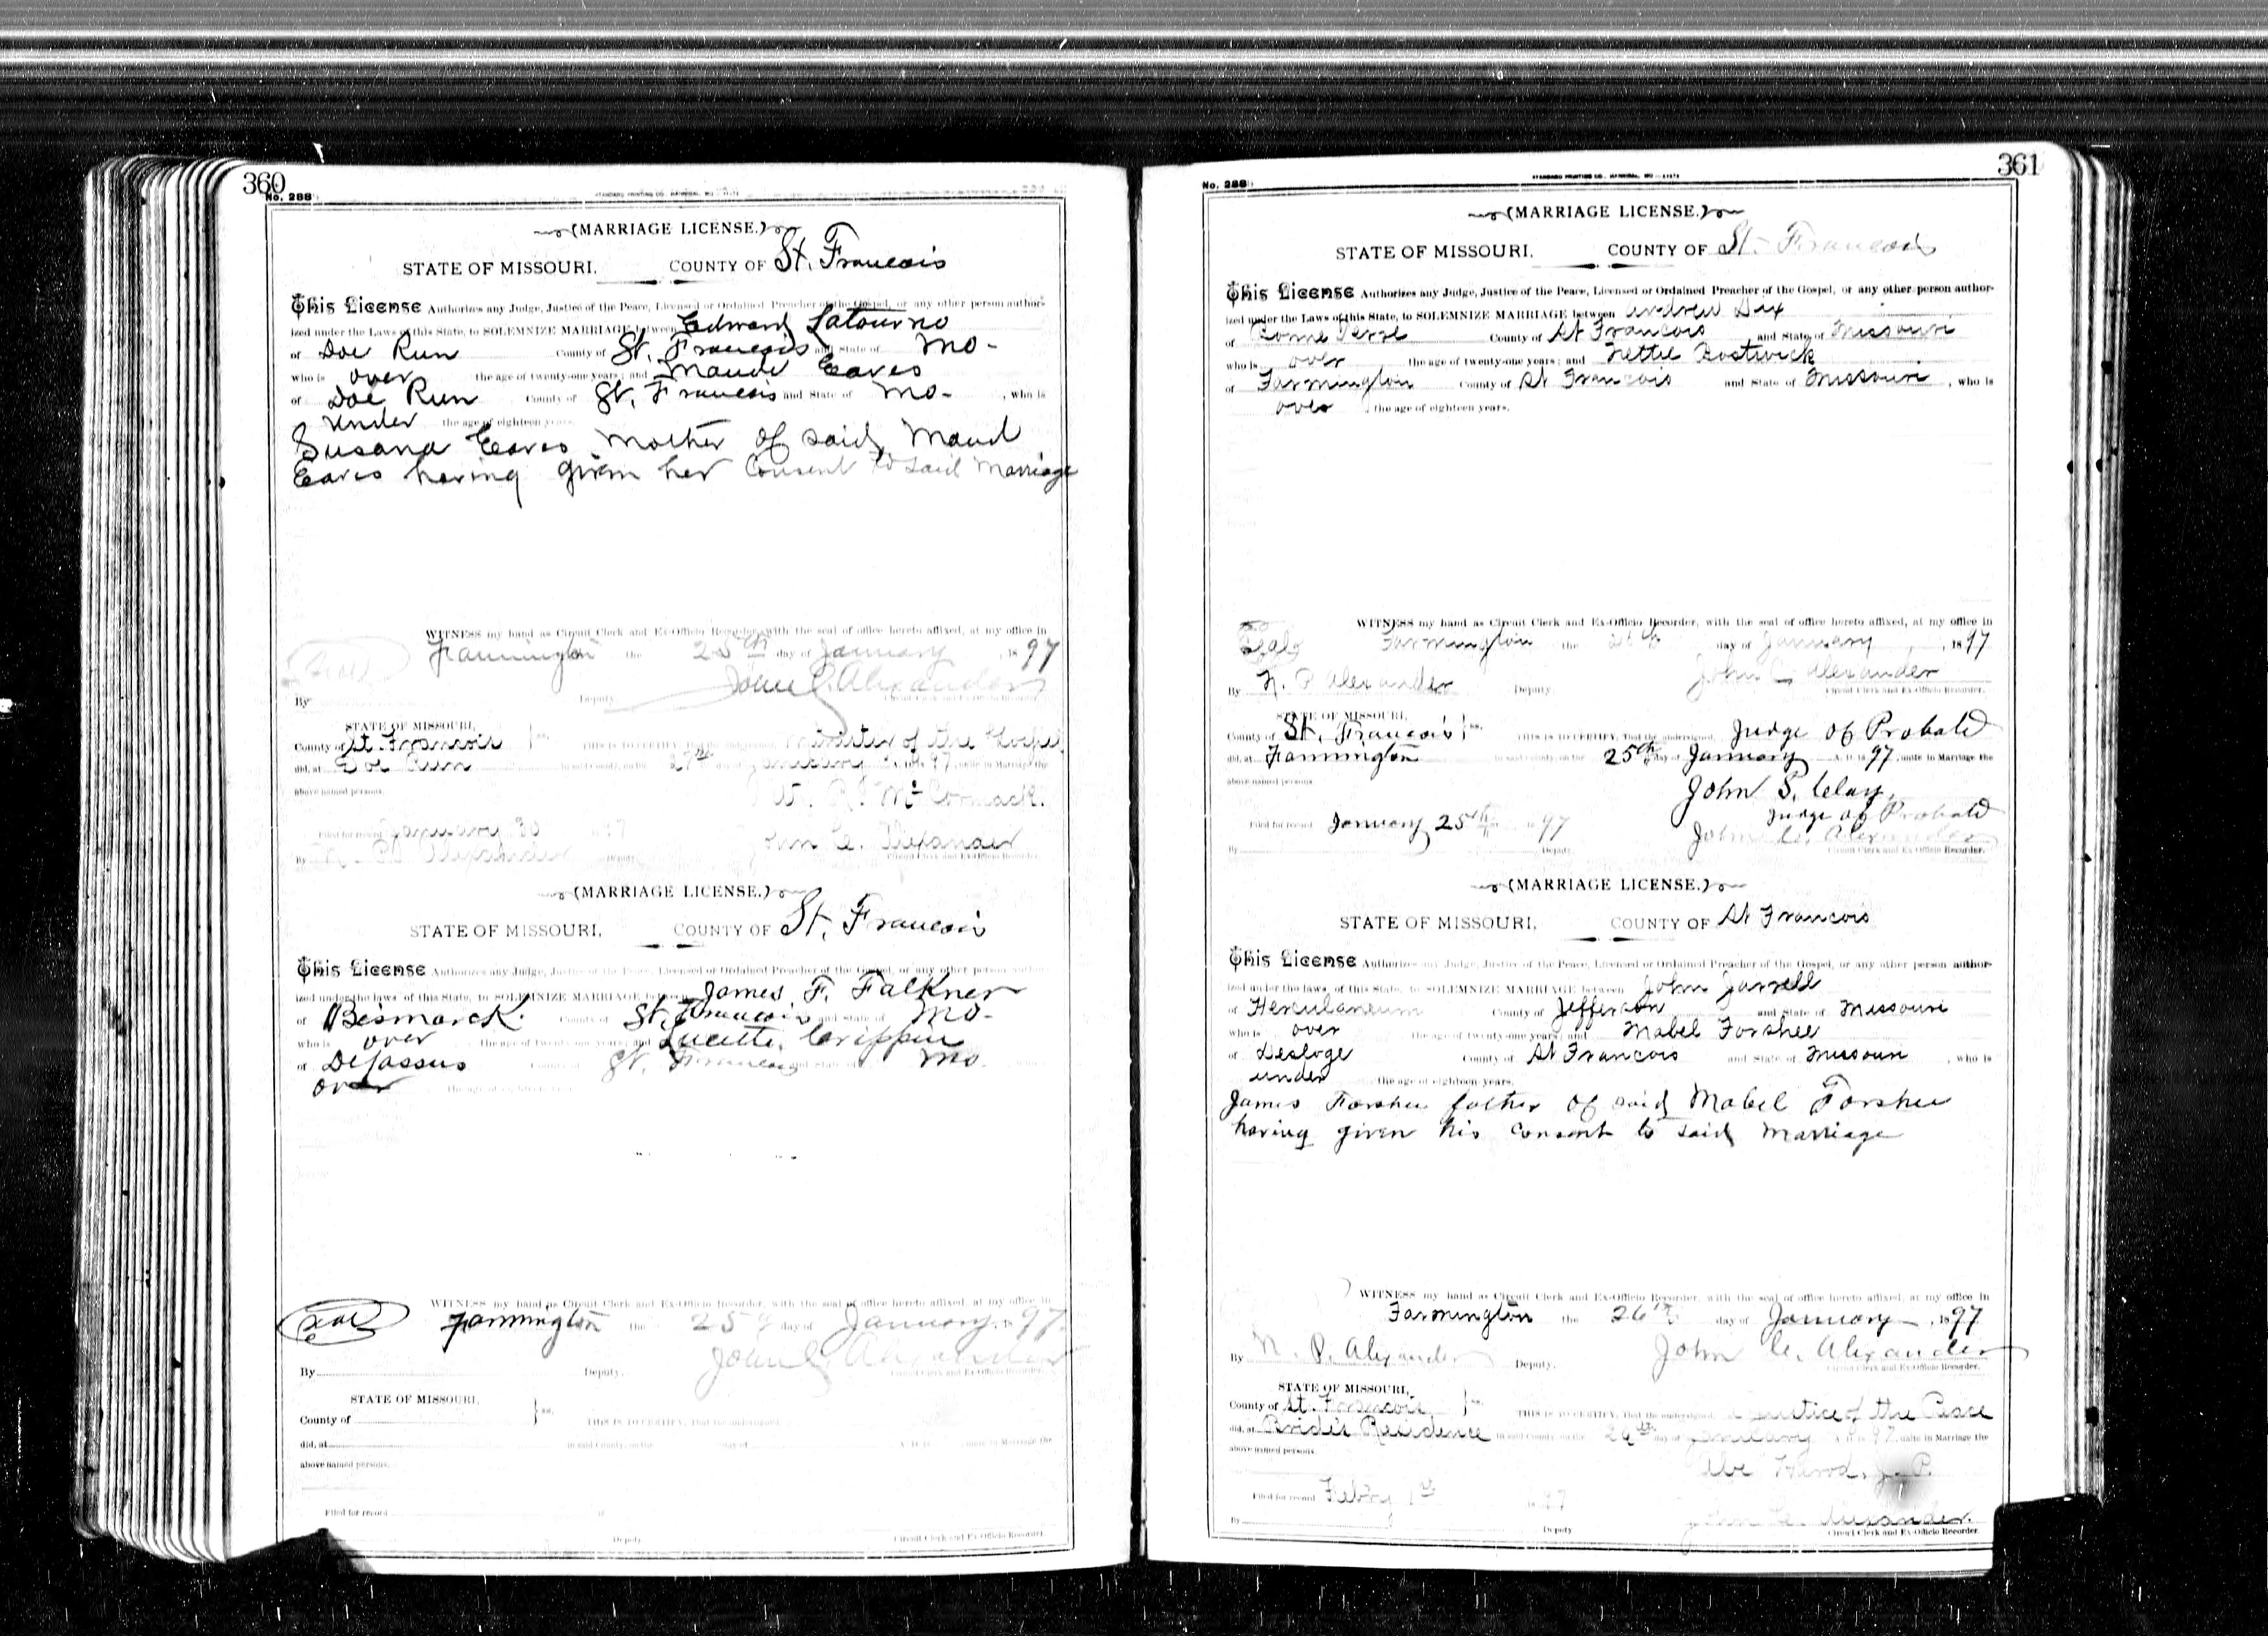 360
No. 288
(MARRIAGE LICENSE.)
STATE OF MISSOURI, COUNTY OF St. Francois
This License Authorizes any Judge, Justice of the Peace, Licensed or Ordained Preacher of the Gospel, or any other person author-
ized under the Laws of this State, to SOLEMNIZE MARRIAGE between Edward Latourno
of Doe Run County of St. Francois and State of Mo-
who is over the age of twenty-one years; and Maude Eaves
of Doe Run County of St. Francois and State of Mo- , who is
under the age of eighteen years.
Susana Eaves Mother of said Maud
Eaves having given her Consent to said Marriage
WITNESS my hand as Circuit Clerk and Ex-Officio Recorder, with the seal of office hereto affixed, at my office in
Farmington the 25th day of January , 1897
By Deputy. John C. Alexander
Circuit Clerk and Ex-Officio Recorder.
STATE OF MISSOURI,
County of St. Francois ss. THIS IS TO CERTIFY, That the undersigned Minister of the Gospel
did, at Doe Run in said County, on the 27th day of January A. D. 1897, unite in Marriage the
above named persons.
W. R. McCormack.
Filed for record January 30 1897
By N. P. Alexander Deputy John C. Alexander
Circuit Clerk and Ex-Officio Recorder.
(MARRIAGE LICENSE.)
STATE OF MISSOURI, COUNTY OF St. Francois
This License Authorizes any Judge, Justice of the Peace, Licensed or Ordained Preacher of the Gospel, or any other person
ized under the laws of this State, to SOLEMNIZE MARRIAGE between James F. Falkner
of Bismarck. County of St. Francois and State of Mo-
who is over the age of twenty-one years; and Lucetta Crippen
of DeLassus County of St. Francois and State of Mo.
over the age of eighteen
WITNESS my hand as Circuit Clerk and Ex-Officio Recorder, with the seal of office hereto affixed, at my office in
Seal Farmington the 25 day of January, 1897
By Deputy. John C. Alexander
Circuit Clerk and Ex-Officio Recorder.
STATE OF MISSOURI,
County of ss. THIS IS TO CERTIFY, That the undersigned
did, at in said County, on the day of A. D. 18 unite in Marriage the
above named persons.
Filed for record 18
Deputy Circuit Clerk and Ex-Officio Recorder.
361
No. 288
STANDARD PRINTING CO., HANNIBAL, MO
(MARRIAGE LICENSE.)
STATE OF MISSOURI, COUNTY OF St. Francois
This License Authorizes any Judge, Justice of the Peace, Licensed or Ordained Preacher of the Gospel, or any other person author-
ized under the Laws of this State, to SOLEMNIZE MARRIAGE between Andrew Dix
of Bonne Terre County of St Francois and State of Missouri
who is over the age of twenty-one years; and Nettie Bostwick
of Farmington County of St Francois and State of Missouri , who is
over the age of eighteen years.
WITNESS my hand as Circuit Clerk and Ex-Officio Recorder, with the seal of office hereto affixed, at my office in
Seal Farmington the day of January , 1897
By N. P. Alexander Deputy. John C Alexander
Circuit Clerk and Ex-Officio Recorder.
STATE OF MISSOURI,
County of St. Francois ss. THIS IS TO CERTIFY, That the undersigned Judge of Probate
did, at Farmington in said county on the 25th day of January A. D. 1897 unite in Marriage the
above named persons.
John S. Clay,
Judge of Probate
Filed for record January 25th 1897 John C. Alexander
By Deputy. Circuit Clerk and Ex-Officio Recorder.
(MARRIAGE LICENSE.)
STATE OF MISSOURI, COUNTY OF St Francois
This License Authorizes any Judge, Justice of the Peace, Licensed or Ordained Preacher of the Gospel, or any other person author-
ized under the laws of this State, to SOLEMNIZE MARRIAGE between John Jarrell
of Herculaneum County of Jefferson and State of Missouri
who is over the age of twenty-one years; and Mabel Forshee
of Desloge County of St Francois and State of Missouri , who is
under the age of eighteen years.
James Forshee father of said Mabel Forshee
having given his consent to said marriage
WITNESS my hand as Circuit Clerk and Ex-Officio Recorder, with the seal of office hereto affixed, at my office in
Farmington the 26th day of January , 1897
By N. P. Alexander Deputy. John C. Alexander
Circuit Clerk and Ex-Officio Recorder.
STATE OF MISSOURI,
County of St. Francois ss. THIS IS TO CERTIFY, That the undersigned a Justice of the Peace
did, at Bride's Residence in said County on the day of January A. D. 1897 unite in Marriage the
above named persons.
Abe J. P.
Filed for record Feb'ry 1st 1897
By Deputy John C. Alexander.
Circuit Clerk and Ex-Officio Recorder.